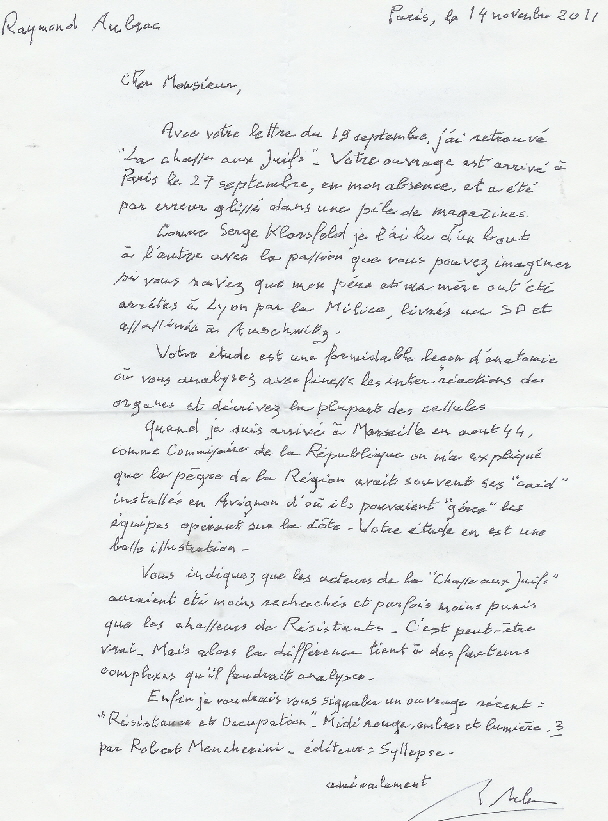 Raymond Aubrac
Paris, le 14 novembre 2011
Cher Monsieur,
Avec votre lettre du 19 septembre, j'ai retrouvé
"La chasse aux Juifs". Votre ouvrage est arrivé à
Paris le 27 septembre, en mon absence, et a été
par erreur glissé dans une pile de magazines.
Comme Serge Klarsfeld je l'ai lu d'un bout
à l'autre avec la passion que vous pouvez imaginer
si vous savez que mon père et ma mère ont été
arrêtés à Lyon par la Milice, livrés au SD et
assassinés à Auschwitz.
Votre étude est une formidable leçon d'anatomie
où vous analysez avec finesse les inter-réactions des
organes et décrivez la plupart des cellules
Quand je suis arrivé à Marseille en aout 44,
comme Commissaire de la République on m'a expliqué
que la pègre de la Région avait souvent ses "caïd"
installés en Avignon d'où ils pouvaient "gérer" les
équipes opérant sur la Côte - Votre étude en est une
belle illustration -
Vous indiquez que les acteurs de la "Chasse aux Juifs"
auraient été moins recherchés et parfois moins punis
que les chasseurs de Résistants - C'est peut-être
vrai - Mais alors la différence tient à des facteurs
complexes qu'il faudrait analyser -
Enfin je voudrais vous signaler un ouvrage récent =
"Résistance et Occupation" - Midi rouge, ombres et lumière, 3
par Robert Mencherini - éditeur = Syllepse -
amicalement